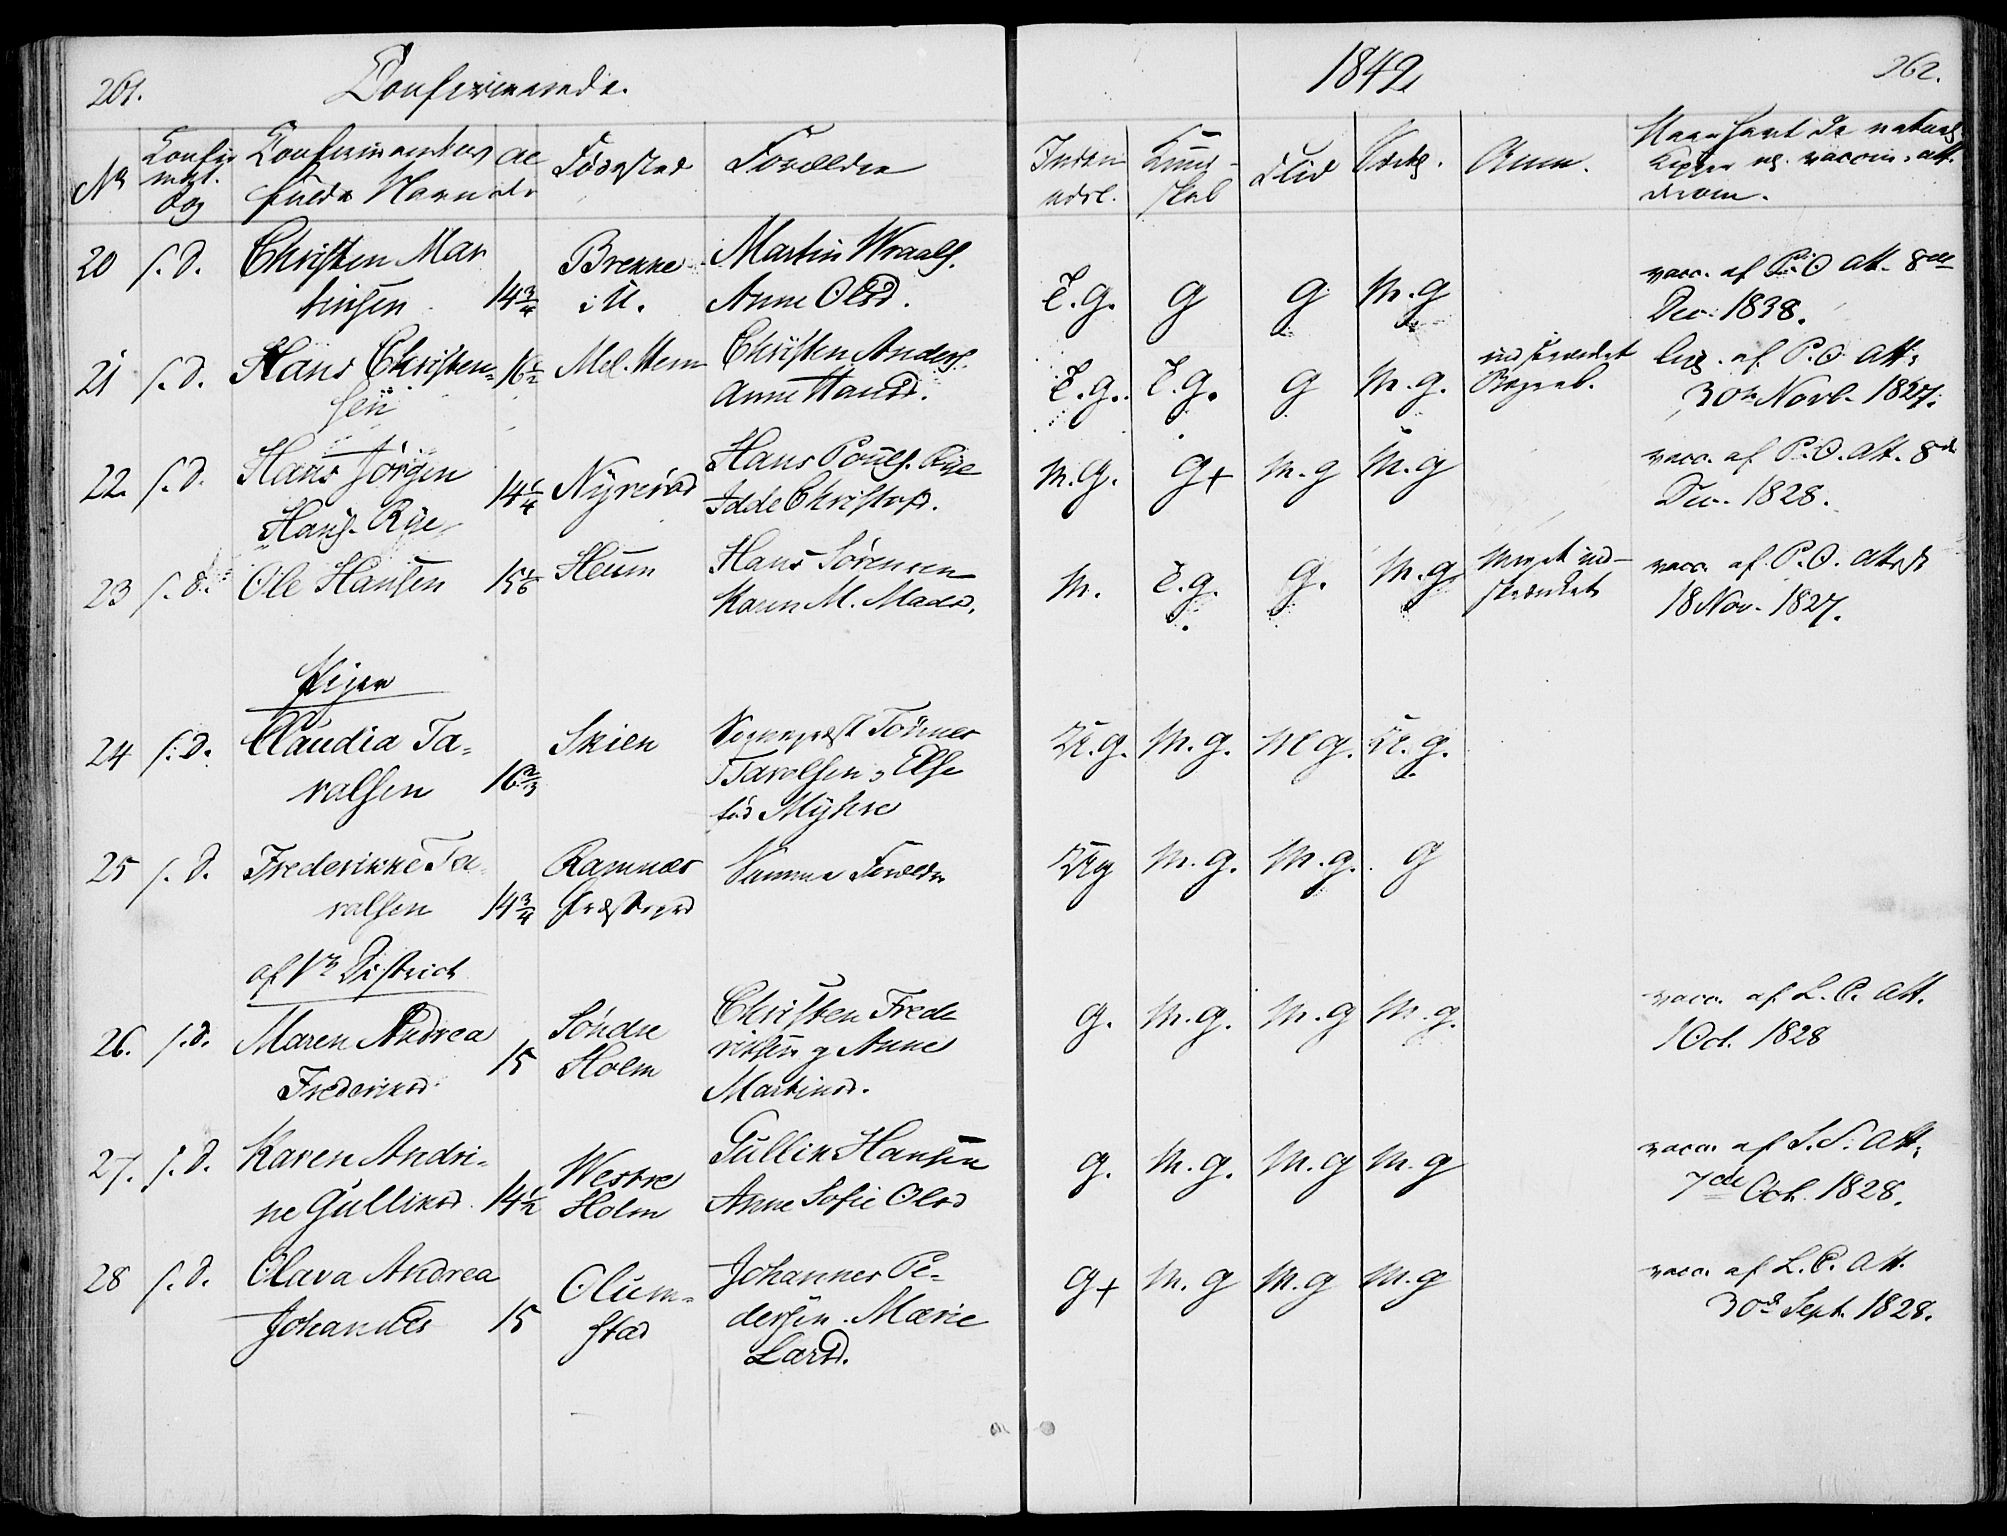 261.
Confirmerede.
1842,
262.
No
Confir
mat.
dag
Confirmanternes
fulde Navn
Al
der
Fødested
Forældre
Indenad
Kund-
skab
Flid
Anm.
Naar havt de naturl.
Kopper og vaccin. att.
derom.
20 s. D. Christen Mar
tinsen 14 3/4
Brekke
i U.
Martin Wraals.
Anne Olsd.
T.g. g g M.g
vacc. af P.O att. 8de
Dec. 1838.
21 s. D. Hans Christen-
sen 16 1/2
Mel. Hem
Christen Anders.
Anne Hansd.
T.g. T.g. g M.g.
indskrænket
af P.O. att.
30te Novb. 1827.
22. s. D. Hans Jörgen
Hans. Rye 14 1/4
Nyreröd
Hans Pouls. Rye
Idde Christofd.
M.g. g+ M.g M.g
vacc. af P.O. att. 8de
Dec. 1828.
23 s. D. Ole Hansen 15 1/6
Heum
Hans Sörensen
Karen M. Madsd.
M. T.g. g. M.g
Meget ind-
skrænket
vacc. af P.O. attest
18 Nov. 1827.
Piger
24 s. D. Claudia Ta-
ralsen 16 2/3
Skien
Sognepræst Tönnes
Taralsen, Else
fød Myhre
M.g. M.g.
25 s. D. Frederikke Ta-
ralsen 14 3/4
Ramnæs
Præstegrd
Samme Forældre
M.g. M.g. g
af 1ste District
26. s. D. Maren Andrea
Frederiksd. 15
Söndre
Holm
Christen Frede
riksen og Anne
Martinsd.
g. M.g. M.g M.g.
vacc. af L.C. att.
1 Oct. 1828
27. s. D. Karen Andri-
ne Gulliksd. 14 1/2
Westre
Holm
Gullik Hansen
Anne Sofie Olsd
g. M.g. M.g M.g
vacc. af S.S. att.
7de Oct. 1828.
28 s. D. Olava Andrea
Johannesd 15
Olum-
stad
Johannes Pe-
dersen. Marie
Larsd.
g+ M.g M.g M.g
vacc. af L.C. att.
30de Sept. 1828.